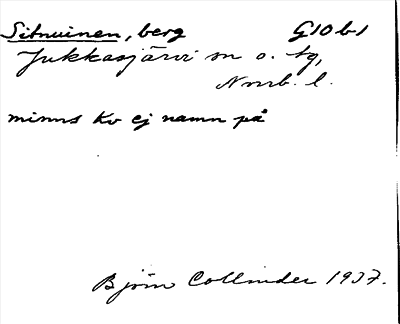 Sitnuinen, berg G10b1
Jukkasjärvi sn o. tg,
Nmrb. l.
minns Kv ej namn på
Björn Collinder 1937.